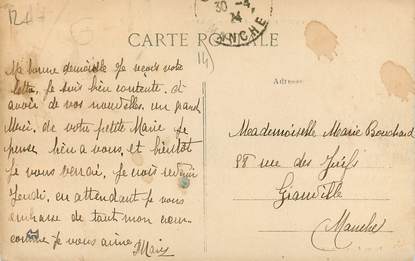 30 -4
14
MANCHE
CARTE POSTALE
Adresse
Ma bonne demoiselle Je reçois votre
lettre, je suis bien contente, d'
avoir de vos nouvelles, un grand
Merci, de votre petite Marie je
pense bien a vous, et bientôt
je vous verrai, je vais revenir
Jeudi, en attendant je vous
embrasse de tout mon cœur
comme je vous aime Marie
Meademoiselle Marie Bouchard
98 rue des Juifs
Granville
Manche